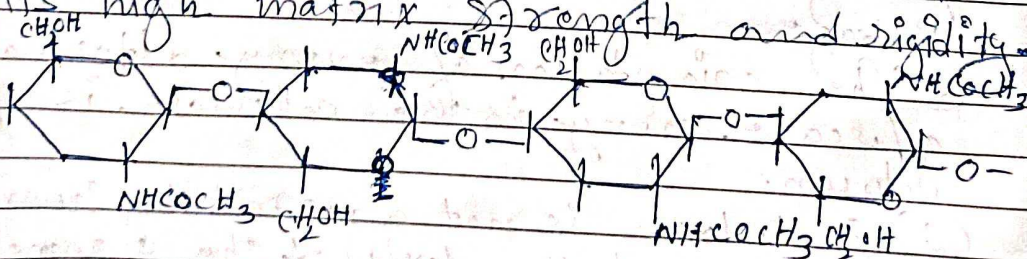 its high matrix strength and rigidity.
CH2OH NHCOCH3 CH2OH NHCOCH3
O O O O
O O O O-
NHCOCH3 CH2OH NHCOCH3 CH2OH